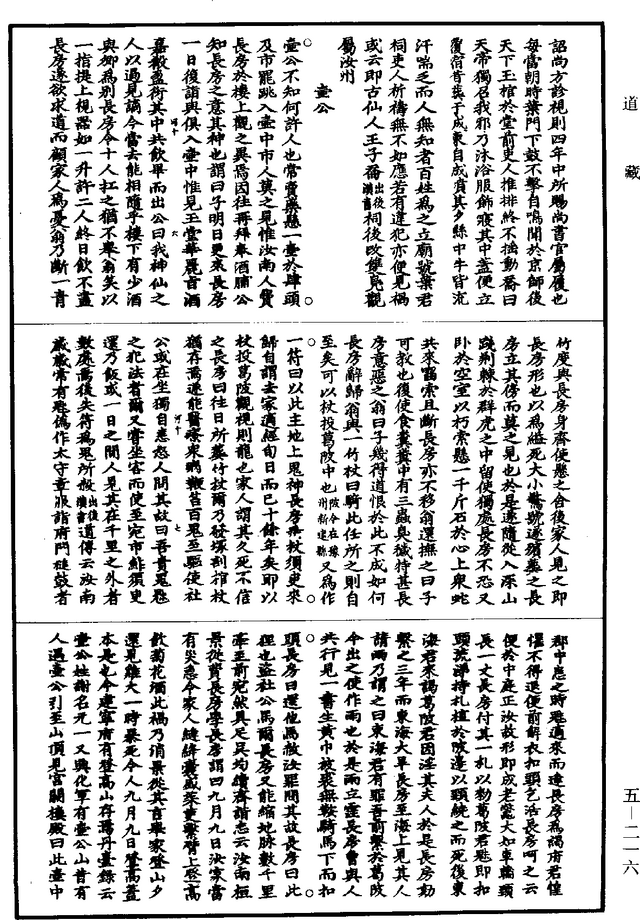 道
藏
詔尚方診視則四年中所賜尚書官屬履也
每當朝時葉門下鼓不擊自鳴聞於京師後
天下玉棺於堂前吏人推排終不搖動喬曰
天帝獨召我邪乃沐浴服飾寢其中蓋便立
覆宿昔葬于城東自成墳其夕縣中牛皆流
汗喘乏而人無知者百姓為之立廟號葉君
祠吏人祈禱無不如應若有違犯亦便見禍
或云即古仙人王子喬出後漢書祠後改雙鳧觀
屬汝州
壺公
壺公不知何許人也常賣藥懸一壺於肆頭
及市罷跳入壺中市人莫之見惟汝南人費
長房於樓上觀之異焉因往再拜奉酒脯公
知長房之意其神也謂曰子明日更來長房
一日復詣與俱入壺中惟見玉堂華麗旨酒
嘉殽盈衎其中共飲畢而出公曰我神仙之
人以過見謫今當去能相隨乎樓下有少酒
與卿為別長房令十人扛之猶不舉翁笑以
一指提上視器如一升許二人終日飲不盡
長房遂欲求道而顧家人為憂翁乃斷一青
竹度與長房身齊使懸之舍後家人見之即
長房形也以為縊死大小驚號遂殯葬之長
房立其傍而莫之見也於是遂隨從入深山
踐荊棘於群虎之中留使獨處長房不恐又
臥於空室以朽索懸一千斤石於心上衆蛇
共來齧索且斷長房亦不移翁還撫之曰子
可教也復使食糞糞中有三蟲臭穢特甚長
房意惡之翁曰子幾得道恨於此不成如何
長房辭歸翁與一竹杖曰騎此任所之則自
至矣可以杖投葛陂中也陂今在豫州新建縣又為作
一符曰以此主地上鬼神長房乘杖須臾來
歸自謂去家適經旬日而已十餘年矣即以
杖投葛陂顧視則龍也家人謂其久死不信
之長房曰往日所葬竹杖爾乃發塚剖棺杖
猶存焉遂能醫療衆病鞭笞百鬼至驅使社
公或在坐獨自恚怒人問其故曰吾責鬼魅
之犯法者爾又嘗坐客而使至宛市鮓須臾
還乃飯或一日之間人見其在千里之外者
數處焉後失符為鬼所殺出後漢書道傳云汝南
歲歲常有魅偽作太守章服詣府門椎鼓者
郡中患之時魅適來而逢長房為謁府君惶
懼不得退便前解衣扣頭乞活長房呵之云
便於中庭正汝故形即成老鼈大如車輪頸
長一丈長房付其一札以敕葛陂君魅即扣
頭流涕持札植於陂邊以頸繞之而死後東
海君來謁葛陂君因淫其夫人於是長房劾
繫之三年而東海大旱長房至海上見其人
請雨乃謂之曰東海君有罪吾前繫於葛陂
今出之使作雨也於是雨立霔長房曾與人
共行見一書生黃巾被裘無鞍騎馬下而扣
頭長房曰還他馬赦汝罪問其故長房曰此
狸也盜社公馬爾長房又能縮地脉數千里
牽至前宛然具足吳均續齊諧志云汝南桓
景從費長房學長房謂曰九月九日汝家當
有災急令家人縫絳囊盛茱萸繫臂上登高
飲菊花酒此禍乃消景從其言舉家登山夕
還見雞犬一時暴死今人九月九日登高蓋
本是也今建寧府有登高山存焉丹臺錄云
壺公姓謝名元一又興化軍有壺公山昔有
人遇壺公引至山頂見宮闕樓殿曰此壺中
五—二一六